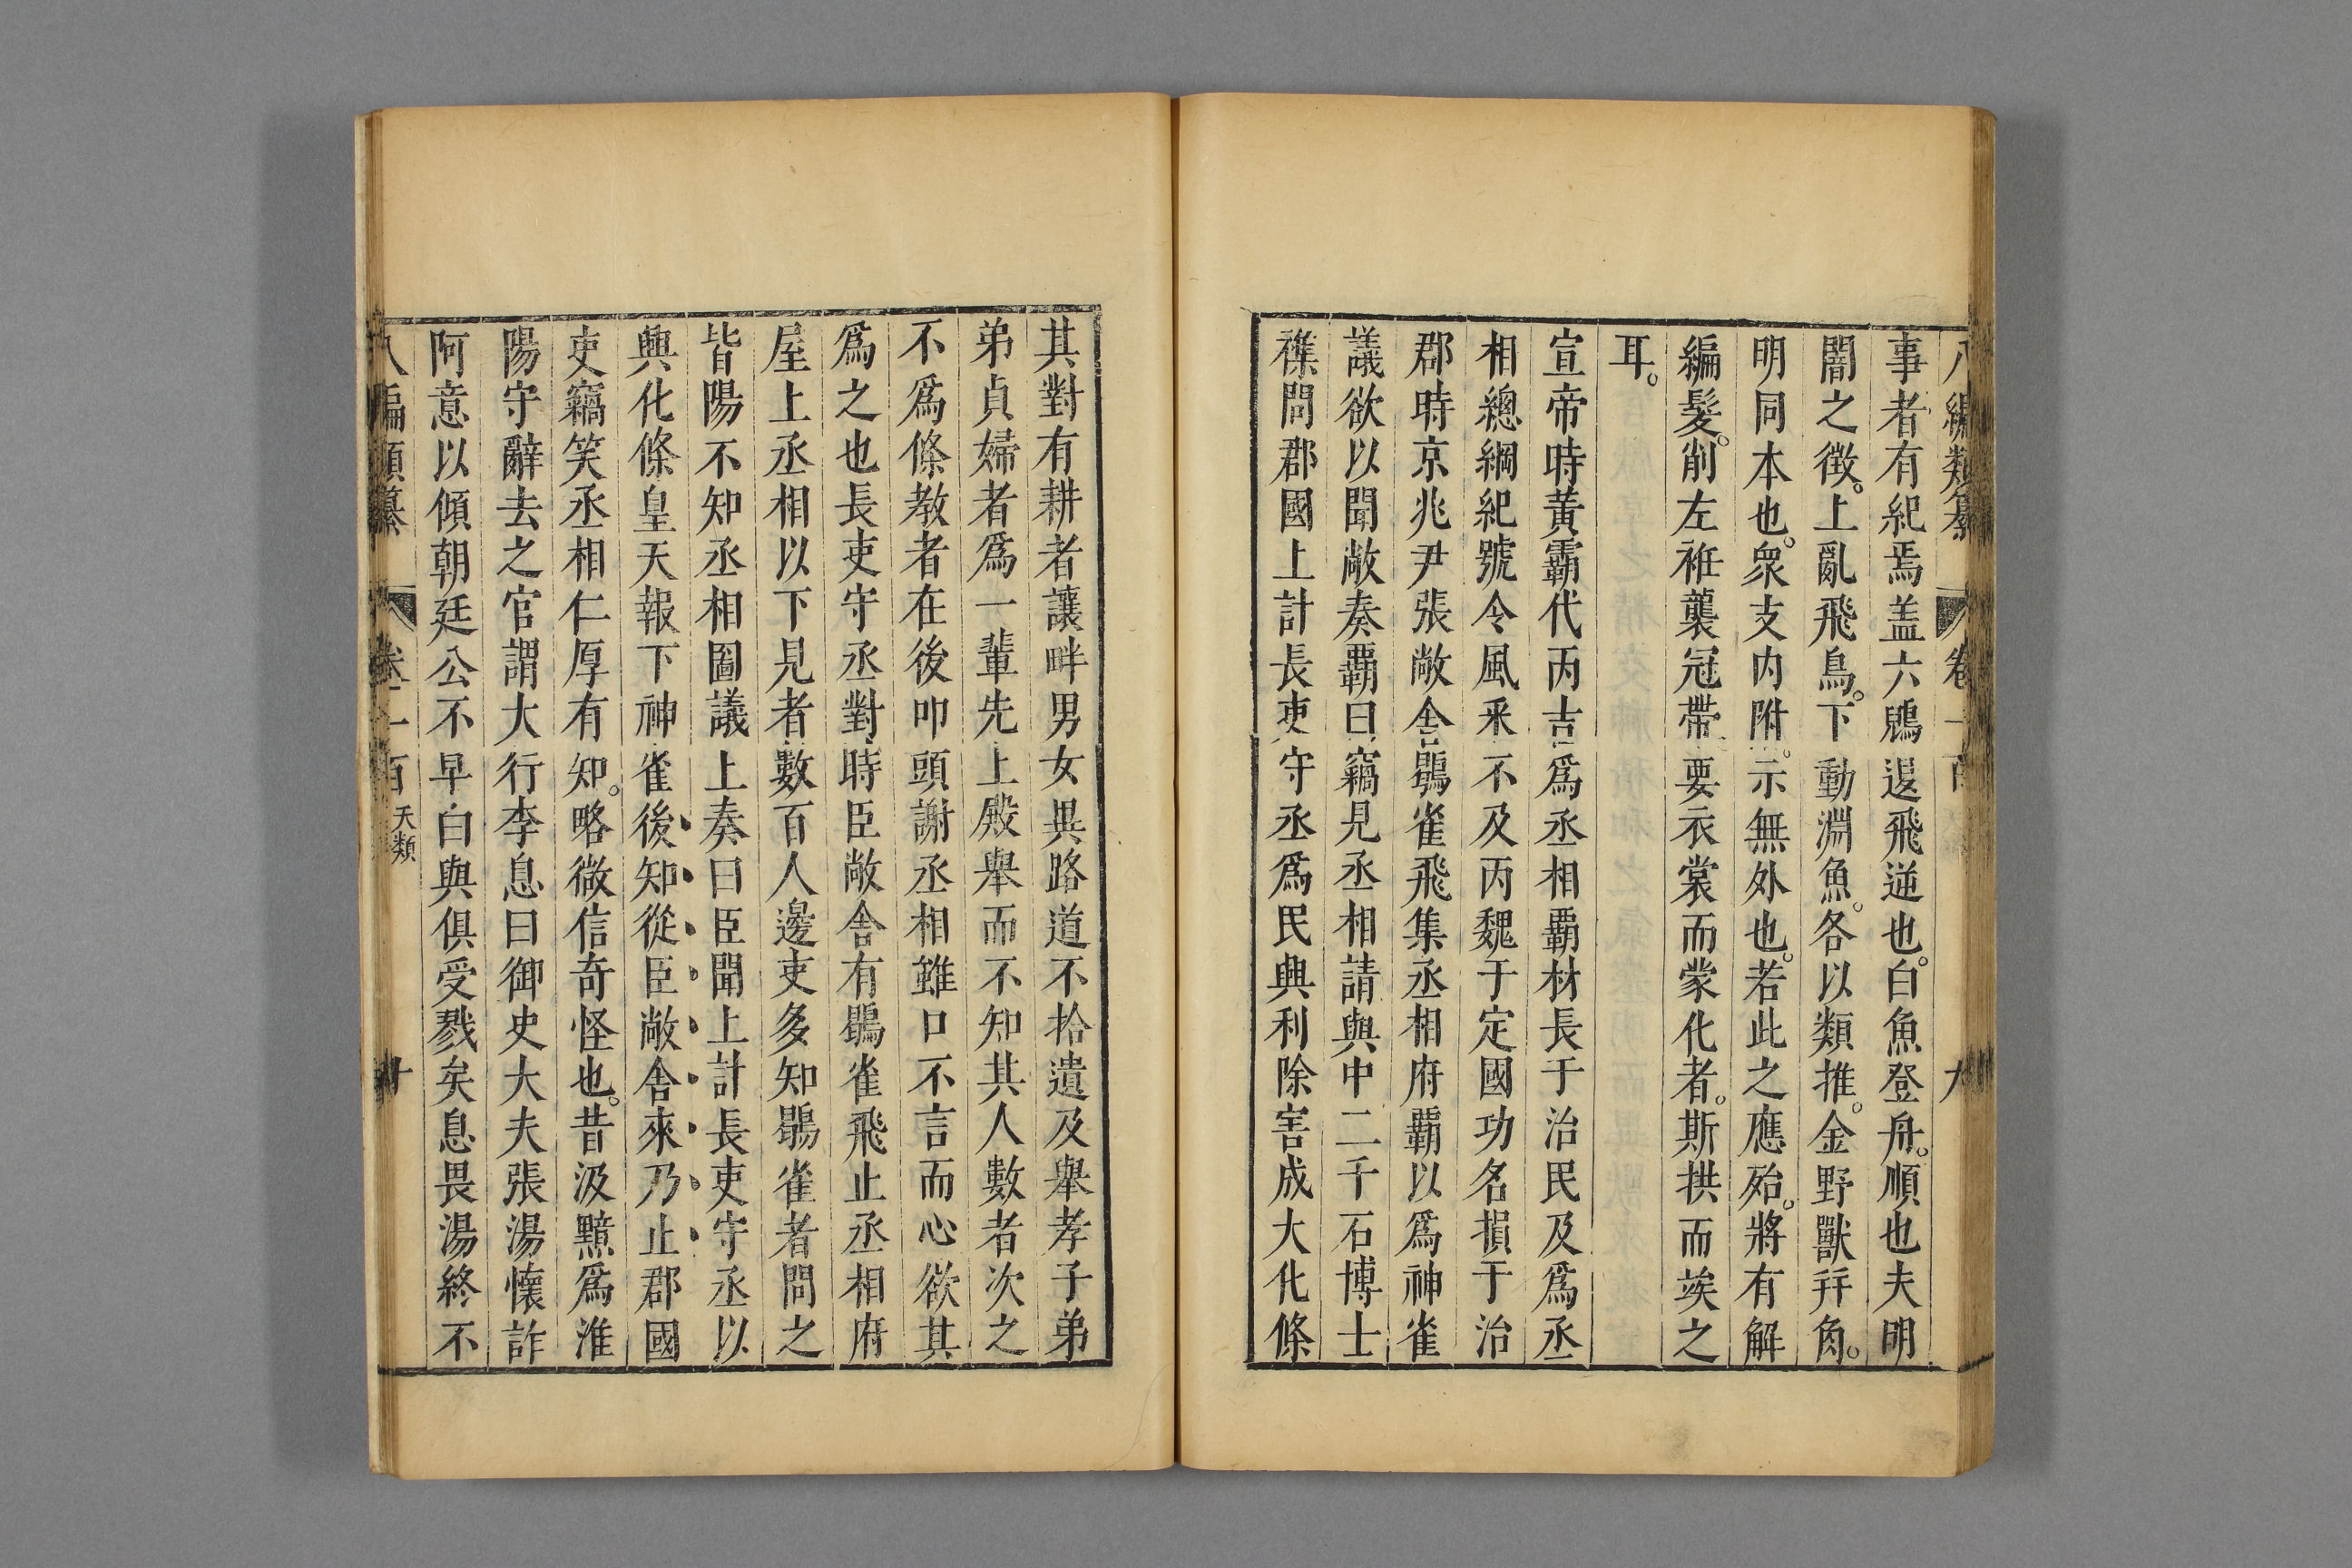 八編類纂 卷一百 九
事者有紀焉盖六鶂退飛逆也。白魚登舟。順也夫明
闇之徵。上亂飛鳥。下動淵魚。各以類推。金野獸幷角。
明同本也。衆支内附。示無外也。若此之應殆。將有解
編髮。削左袵襲冠帶要衣裳而蒙化者。斯拱而竢之
耳。
宣帝時黃霸代丙吉爲丞相覇材長于治民及爲丞
相總綱紀號令風釆不及丙魏于定國功名損于治
郡時京兆尹張敞舍鶡雀飛集丞相府覇以爲神雀
議欲以聞敞奏覇曰竊見丞相請與中二千石博士
襍問郡國上計長吏守丞爲民興利除害成大化條
其對有耕者讓畔男女異路道不拾遺及舉孝子弟
弟貞婦者爲一輩先上殿舉而不知其人數者次之
不爲條教者在後叩頭謝丞相雖口不言而心欲其
爲之也長吏守丞對時臣敞舍有鶡雀飛止丞相府
屋上丞相以下見者數百人邊吏多知鶡雀者問之
皆陽不知丞相圖議上奏曰臣聞上計長吏守丞以
興化條皇天報下神雀後知從臣敞舍來乃止郡國
吏竊笑丞相仁厚有知。略微信奇怪也。昔汲黯爲淮
陽守辭去之官謂大行李息曰御史大夫張湯懷詐
阿意以傾朝廷公不早白與俱受戮矣息畏湯終不
八編類纂 卷一百 天類 十